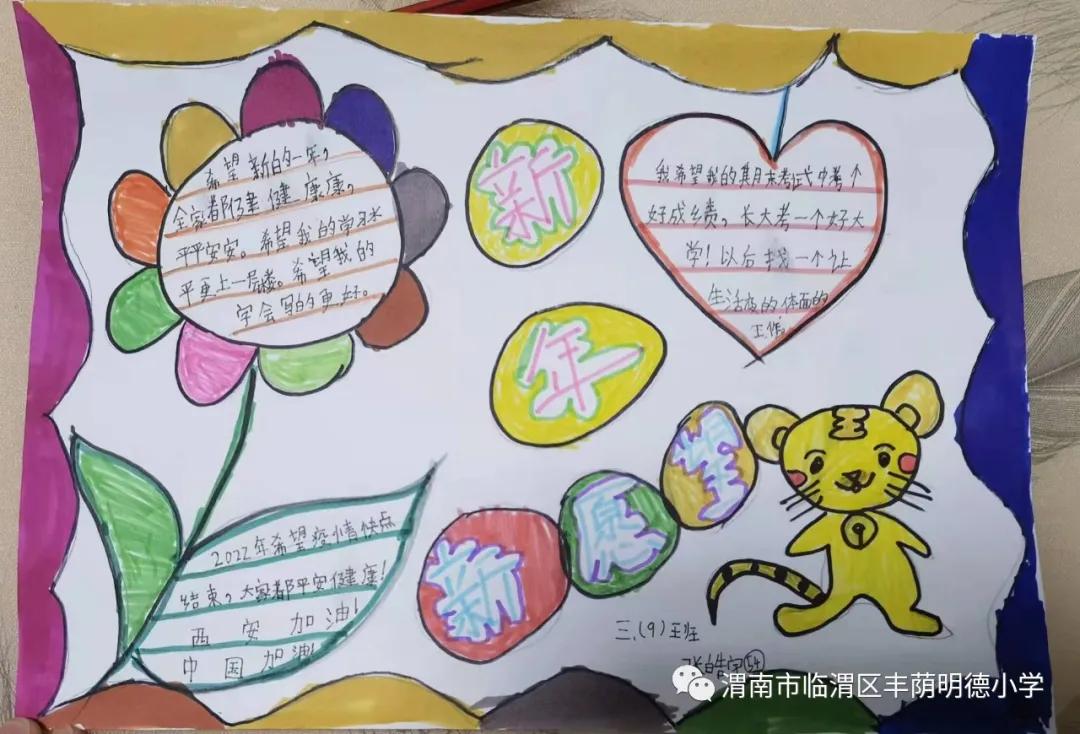 希望新的一年，
全家都健健康康，
平平安安。希望我的学习水
平更上一层楼。希望我的
字会写的更好。
新
年
新
愿
望
我希望我的期末考试中考个
好成绩，长大考一个好大
学！以后找一个让
生活变的体面的
工作。
2022年希望疫情快点
结束，大家都平安健康！
西安加油！
中国加油！
王
三.(9)王班
张皓宇
渭南市临渭区丰荫明德小学